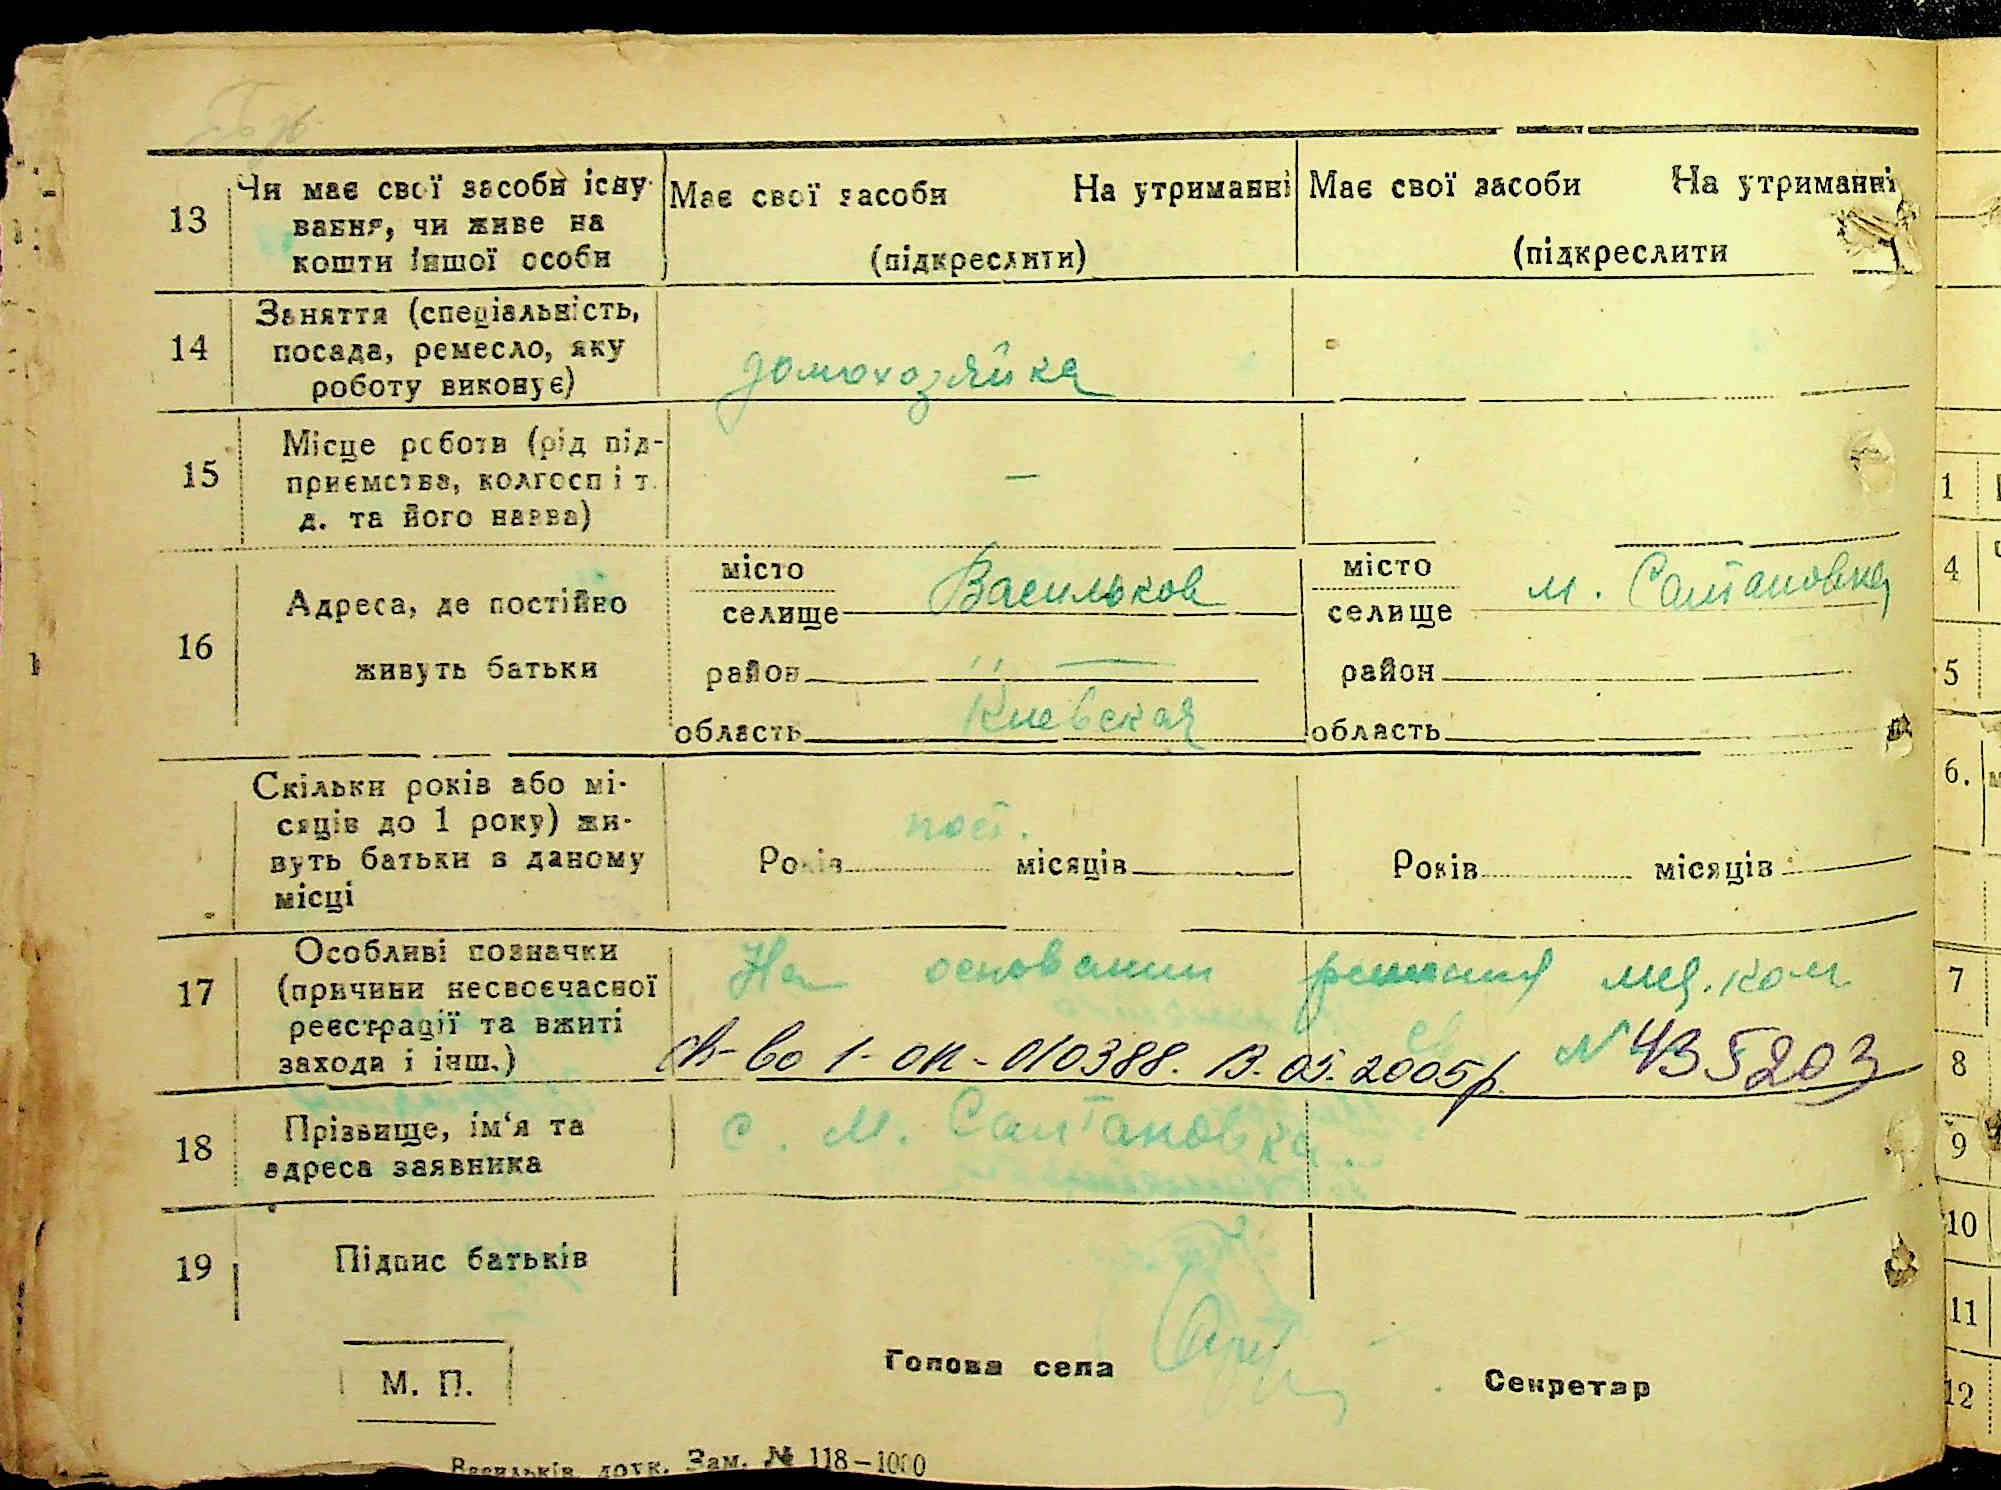 13
Чи має свої засоби існу-
вання, чи живе на
кошти іншої особи
Має свої засоби На утриманні
(підкреслити)
Має свої засоби На утриманні
(підкреслити
14
Заняття (спеціальність,
посада, ремесло, яку
роботу виконує)
домохозяйка
15
Місце роботи (рід під-
приємства, колгосп і т.
д. та його назва)
—
16
Адреса, де постійно
живуть батьки
місто
селище Васильков
район " —
область Киевская
місто
селище м. Салтановка
район
область
Скільки років або мі-
сяців до 1 року) жи-
вуть батьки в даному
місці
пост.
Років місяців
Років місяців
17
Особливі позначки
(причини несвоєчасної
реєстрації та вжиті
заходи і інш.)
На основании решения мед. ком
св-во 1-ОК-010388. 13.05.2005р. № 435203
18
Прізвище, ім‘я та
адреса заявника
с. М. Салтановка
19
Підпис батьків
М. П.
Голова села
Секретар
Васильків, друк. Зам. № 118—1000
1
4
5
6.
7
8
9
10
11
12